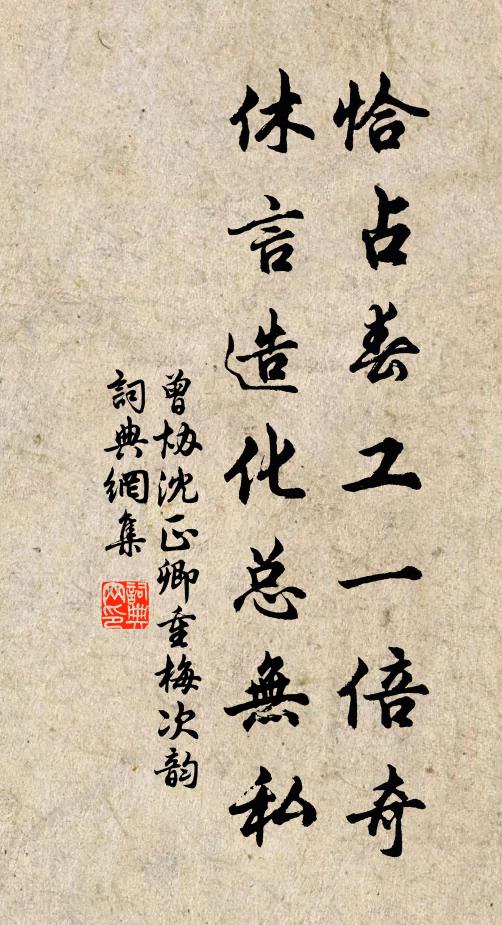 恰占春工一倍奇
休言造化总無私
曾协沈正卿重梅次韵
詞典網集
詞典網印